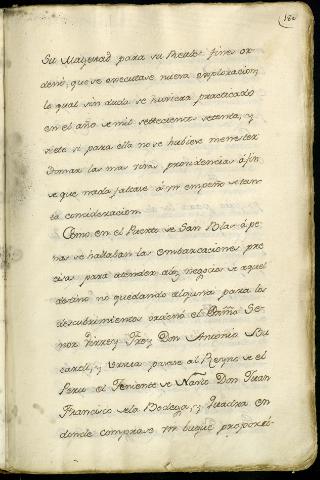 180
Su Magestad para su Rl. fines or-
denó, que se executase nueva exploracion,
lo qual sin duda se huviera practicado
en el año de mil setecientos setenta, y
siete si para ella no se hubiese menester
tomar las mas vivas providencias á fin
de que nada faltase á un empeño de tan-
ta consideracion.
Como en el Puerto de San Blas ápe-
nas se hallaban las embarcaciones pre-
cisas para atender á los negocios de aquel
destino no quedando alguna para los
descubrimientos ordenó el Exmo Se-
ñor Virrey Frey Don Antonio Bu-
careli, y Ursua pasase al Reyno de el
Peru el Teniente de Navio Don Juan
Francisco de la Bodega, y Quadra en
donde comprase un buque proporci-